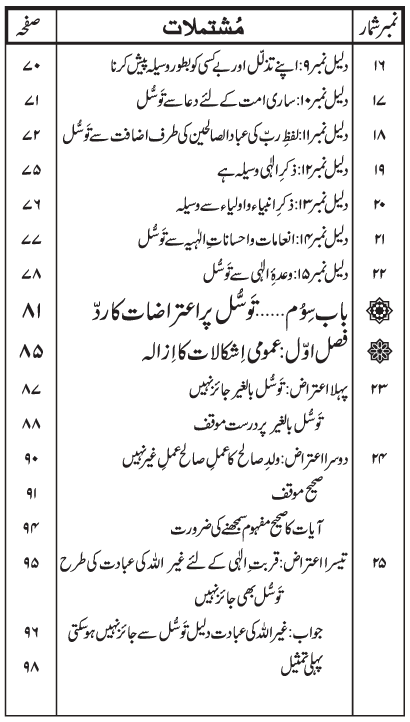 نمبر شمار مُشتملات صفحہ
۱۶ دلیل نمبر ۹: اپنے تذلّل اور بے کسی کو بطور وسیلہ پیش کرنا ۷۰
۱۷ دلیل نمبر ۱۰: ساری امت کے لئے دعا سے توسُّل ۷۱
۱۸ دلیل نمبر ۱۱: لفظِ ربّ کی عباد الصالحین کی طرف اضافت سے توسُّل ۷۲
۱۹ دلیل نمبر ۱۲: ذکرِ الٰہی وسیلہ ہے ۷۵
۲۰ دلیل نمبر ۱۳: ذکرِ انبیاء و اولیاء سے وسیلہ ۷۶
۲۱ دلیل نمبر ۱۴: انعامات و احساناتِ الٰہیہ سے توسُّل ۷۷
۲۲ دلیل نمبر ۱۵: وعدۂ الٰہی سے توسُّل ۷۸
باب سِوُم...... توسُّل پر اعتراضات کا ردّ ۸۱
فصل اوّل: عمومی اِشکالات کا اِزالہ ۸۵
۲۳ پہلا اعتراض: توسُّل بالغیر جائز نہیں ۸۷
توسُّل بالغیر پر درست موقف ۸۸
۲۴ دوسرا اعتراض: ولدِ صالح کا عملِ صالح عملِ غیر نہیں ۹۰
صحیح موقف ۹۱
آیات کا صحیح مفہوم سمجھنے کی ضرورت ۹۴
۲۵ تیسرا اعتراض: قربتِ الٰہی کے لئے غیر اللہ کی عبادت کی طرح ۹۵
توسُّل بھی جائز نہیں
جواب: غیر اللہ کی عبادت دلیلِ توسُّل سے جائز نہیں ہو سکتی ۹۶
پہلی تمثیل ۹۸